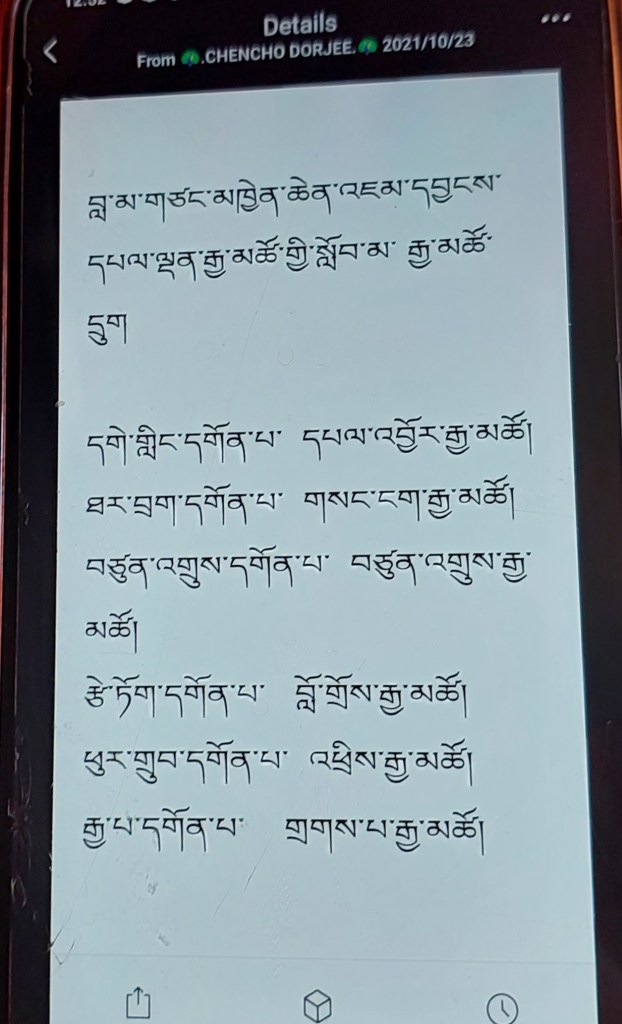 Details
From .CHENCHO DORJEE. 2021/10/23
བླ་མ་གཙང་མཁྱེན་ཆེན་འཇམ་དབྱངས་
དཔལ་ལྡན་རྒྱ་མཚོ་གྱི་སློབ་མ་ རྒྱ་མཚོ་
དྲུག
དགེ་གླིང་དགོན་པ་ དཔལ་འབྱོར་རྒྱ་མཚོ།
ཐར་བྲག་དགོན་པ་ གསང་ངག་རྒྱ་མཚོ།
བཙུན་འགྲུས་དགོན་པ་ བཙུན་འགྲུས་རྒྱ་
མཚོ།
རྩེ་ཏོག་དགོན་པ་ བློ་གྲོས་རྒྱ་མཚོ།
ཕུར་གྲུབ་དགོན་པ་ འཕྲིས་རྒྱ་མཚོ།
རྒྱ་པ་དགོན་པ་ གྲགས་པ་རྒྱ་མཚོ།